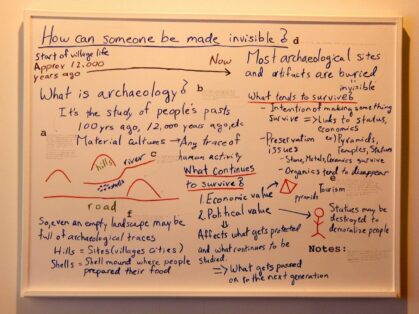 How can someone be made invisible?
a
Start of village life
Approx 12.000
years ago
Now
Most archaeological sites
and artifacts are buried
invisible
What is archaeology?
b
It's the study of people's pasts
100 yrs ago, 12,000 years ago, etc
Material cultures → Any trace of
human activity
a
hills
river
c
road
f
So, even an empty landscape may be
full of archaeological traces
Hills = Sites (villages cities)
Shells = Shell mound where people
prepared their food
What tends to survive?
- Intention of making something
survive => Links to status,
economics
- Preservation ex) Pyramids,
issues Temples, Statues
- Stone, Metals, Ceramics survive
- Organics tend to disappear
What continues
to survive?
1. Economic value →
pyramids
e
Tourism
2. Political value →
Statues may be
destroyed to
demoralize people
↓
Affects what gets protected
and what continues to be
studied.
=> What gets passed
on to the next generation
Notes: